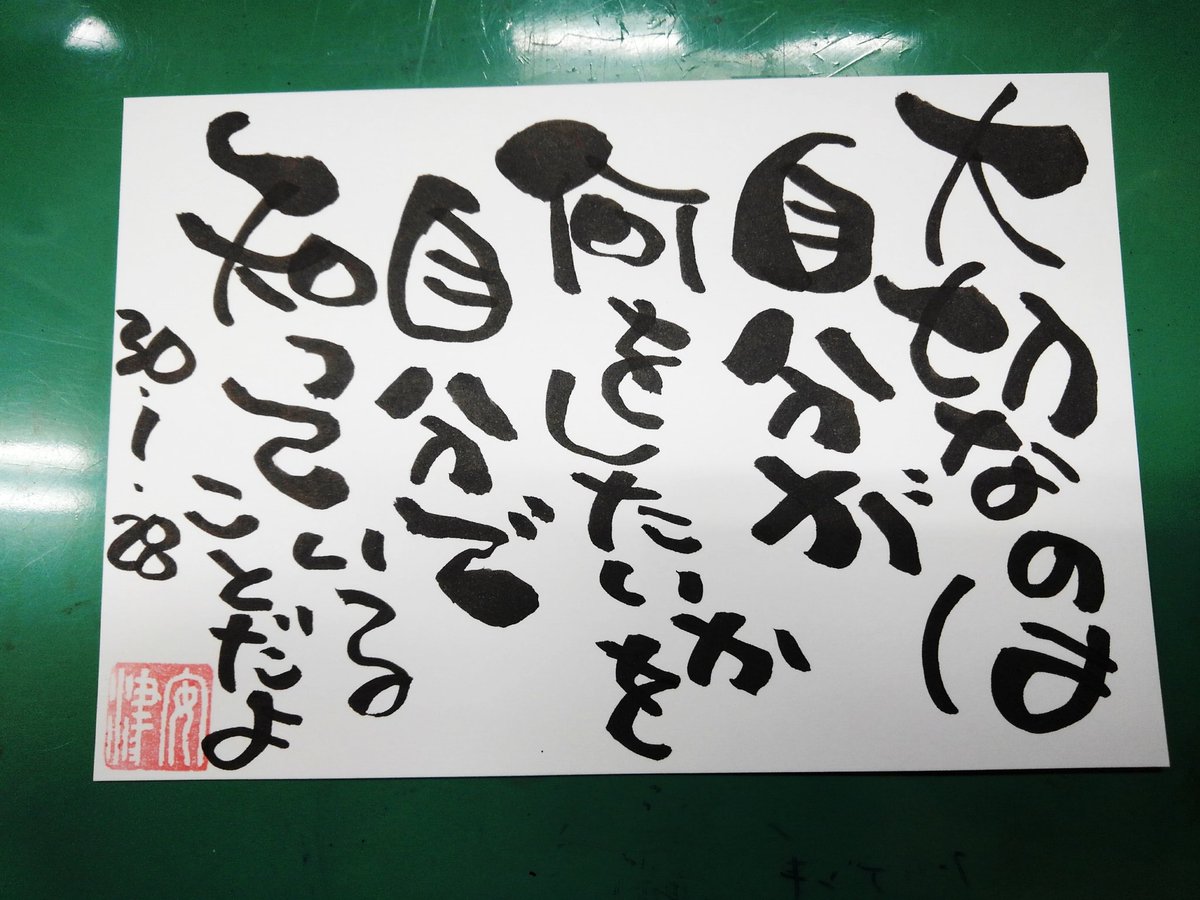 大切なのは
自分が
何をしたいかを
自分で
知っている
ことだよ
30.1.28
安津